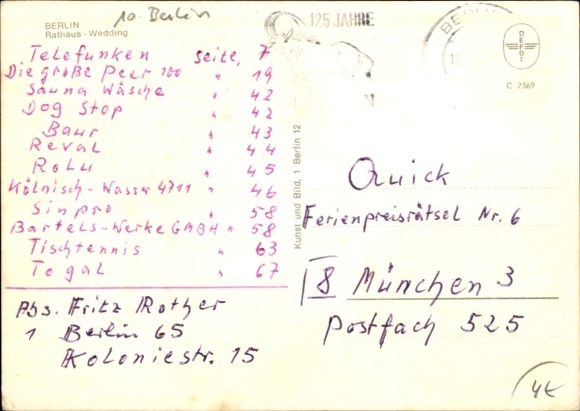 10. Berlin
BERLIN
Rathaus - Wedding
125 JAHRE
BERLIN
DEFOT
C 7369
Telefunken Seite, 7
Die große Peer 100 " 19
Sauna Wäsche " 42
Dog Stop " 42
Baur " 43
Reval " 44
Rolu " 45
Kölnisch-Wasser 4711 " 46
Sinpro " 58
Bartels-Werke GMBH " 58
Tischtennis " 63
Togal " 67
Abs. Fritz Rother
1 Berlin 65
Koloniestr. 15
Kunst und Bild, 1 Berlin 12
Quick
Ferienpreisrätsel Nr. 6
8 München 3
Postfach 525
4€